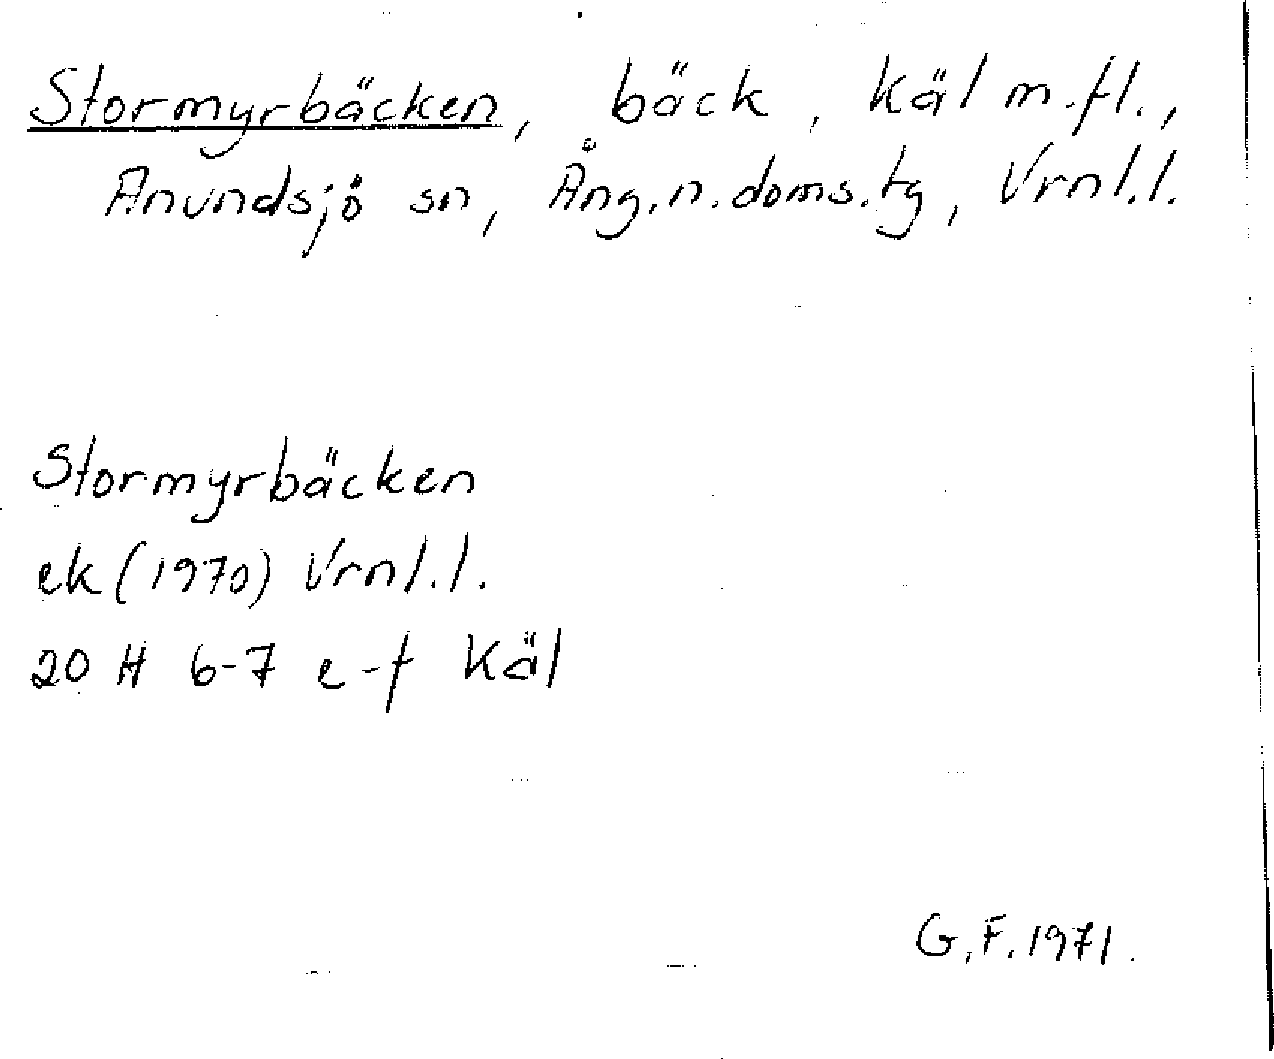 Stormyrbäcken, bäck, Käl m.fl.,
Anundsjö sn, Ång.n.doms.tg, Vrnl.l.
Stormyrbäcken
ek (1970) Vrnl.l.
20 H 6-7 e-f Käl
G.F. 1971.